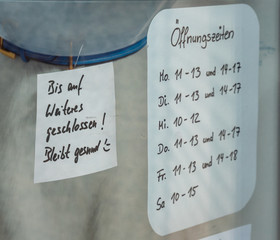 Bis auf
Weiteres
geschlossen!
Bleibt gesund
Öffnungszeiten
Mo. 11-13 und 14-17
Di. 11-13 und 14-17
Mi. 10-12
Do. 11-13 und 14-17
Fr. 11-13 und 14-18
Sa 10-15